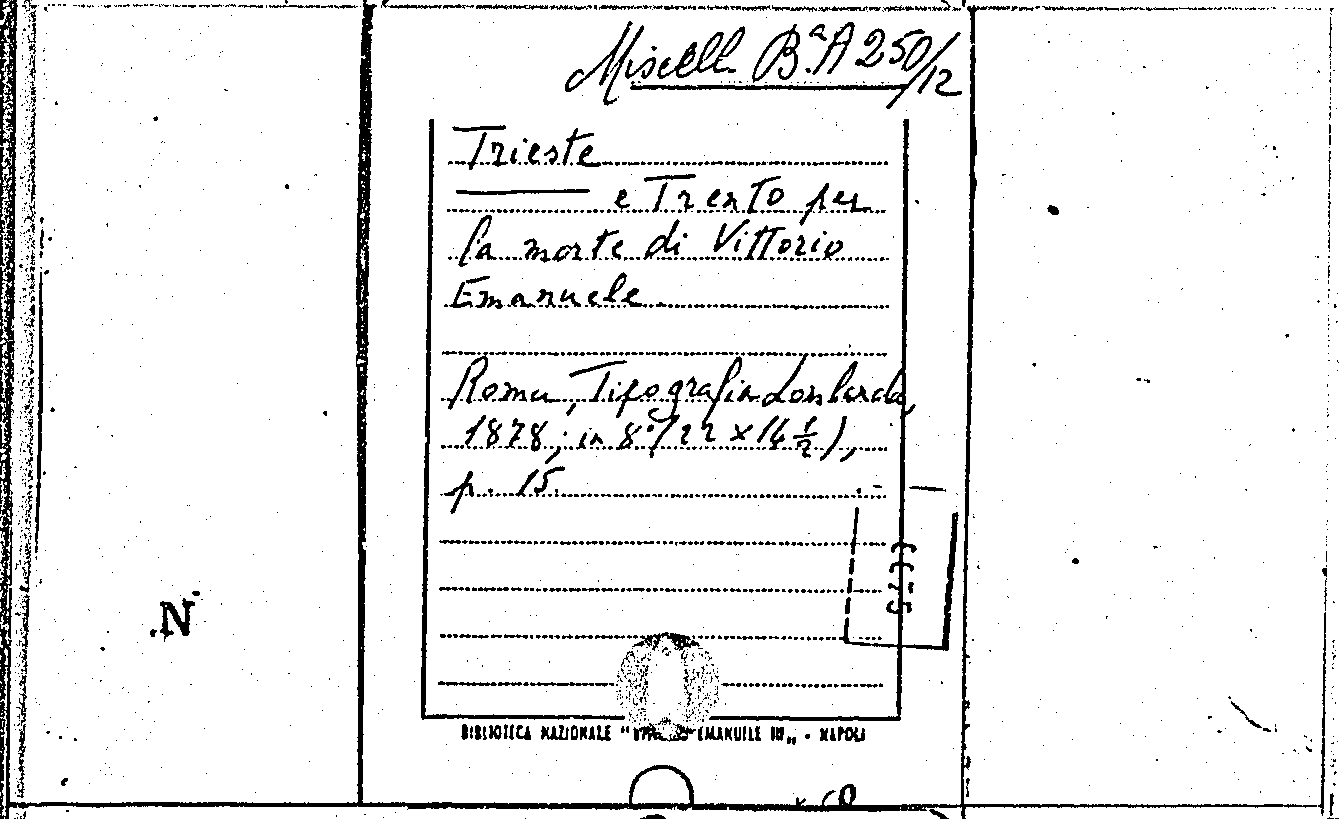 Miscell. B.ª A 250/12
Trieste
e Trento per
la morte di Vittorio
Emanuele.
Roma, Tipografia Lombarda,
1878; in 8° (22 x 14 ½),
p. 15.
N
BIBLIOTECA NAZIONALE " EMANUELE III„ - NAPOLI